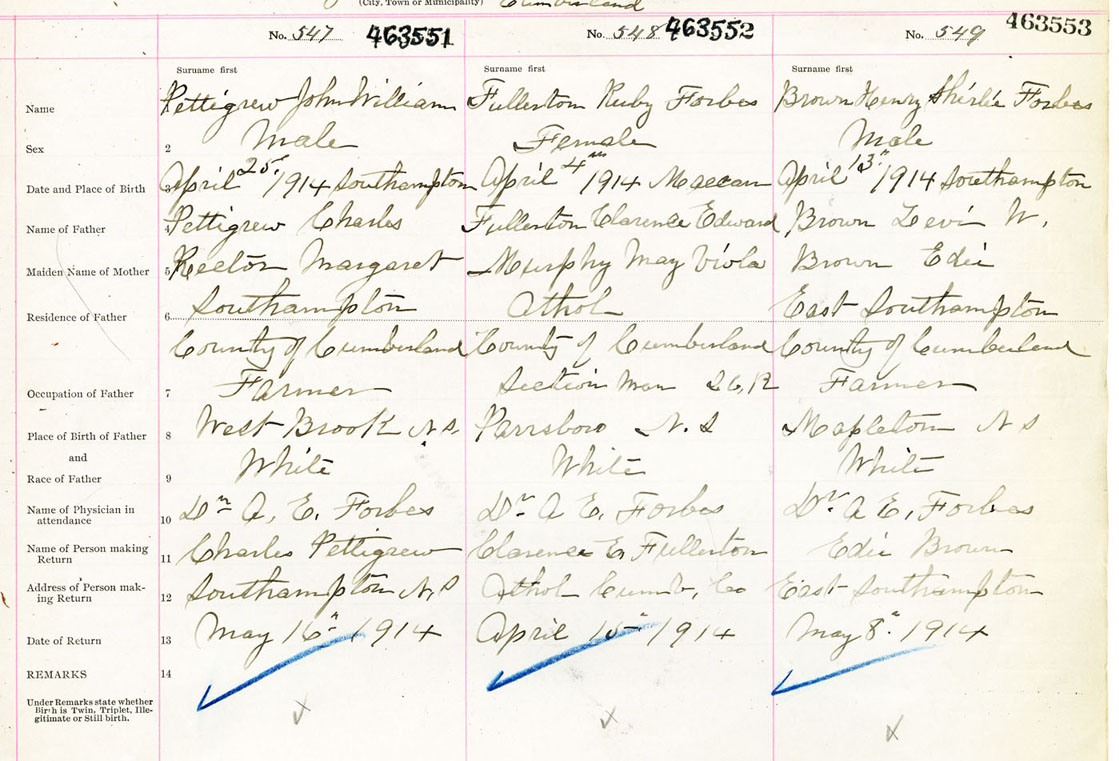 (City, Town or Municipality) Cumberland
No. 547 463551 No. 548 463552 No. 549 463553
Surname first Surname first Surname first
Name Pettigrew John William Fullerton Ruby Forbes Brown Henry Shirlie Forbes
Sex 2 Male Female Male
Date and Place of Birth April 25" 1914 Southampton April 4th 1914 Maccan April 13" 1914 Southampton
Name of Father 4 Pettigrew Charles Fullerton Clarence Edward Brown Levi W.
Maiden Name of Mother 5 Rector Margaret Murphy May Viola Brown Edie
Residence of Father 6 Southampton Athol East Southampton
County of Cumberland County of Cumberland County of Cumberland
Occupation of Father 7 Farmer Section Man Farmer
Place of Birth of Father 8 West Brook N.S. Parrsboro N.S Mapleton N S
and
Race of Father 9 White White White
Name of Physician in
attendance 10 Dr A. E. Forbes Dr A E. Forbes Dr A E. Forbes
Name of Person making
Return 11 Charles Pettigrew Clarence E. Fullerton Edie Brown
Address of Person mak-
ing Return 12 Southampton N.S Athol Cumb. Co East Southampton
Date of Return 13 May 16" 1914 April 15" 1914 May 8" 1914
REMARKS 14
Under Remarks state whether
Birth is Twin, Triplet, Ille-
gitimate or Still birth.